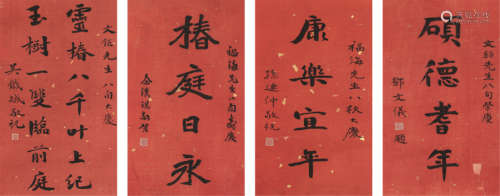 先生八旬榮慶
碩德耆年
鄧文儀題
福海先生八秩大慶
康樂宜年
孫連仲敬祝
福海先生八旬壽慶
椿庭日永
余漢謀敬賀
先生八旬大慶
靈椿八千叶上紀
玉樹一雙臨前庭
吳鐵城敬祝